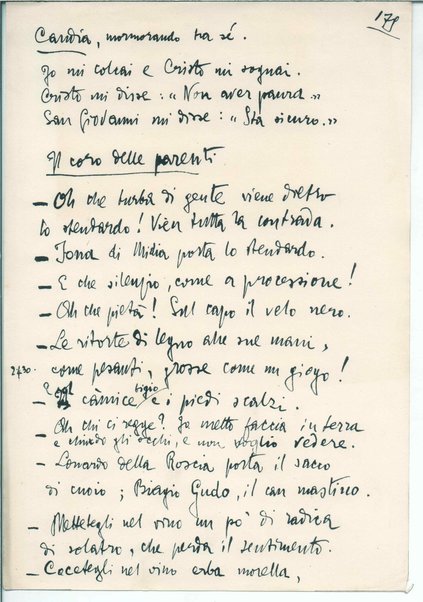 179
Candia, mormorando tra sé.
Io mi colcai e Cristo mi sognai.
Cristo mi disse: « Non aver paura. »
San Giovanni mi disse: « Sta sicuro. »
Il coro delle parenti
— Oh che turba di gente viene dietro
lo stendardo! Vien tutta la contrada.
— Iona di Midia porta lo stendardo.
— E che silenzio, come a processione!
— Oh che pietà! Sul capo il velo nero.
— Le ritorte di legno alle sue mani,
2430. come pesanti, grosse come un giogo!
— E càmice bigio e i piedi scalzi.
— Oh chi ci regge? Io metto faccia in terra
e chiudo gli occhi, e non voglio vedere.
— Leonardo della Roscia porta il sacco
di cuoio; Biagio Gudo, il can mastino.
— Mettetegli nel vino un po' di radica
di solatro, che perda il sentimento.
— Cocetegli nel vino erba morella,